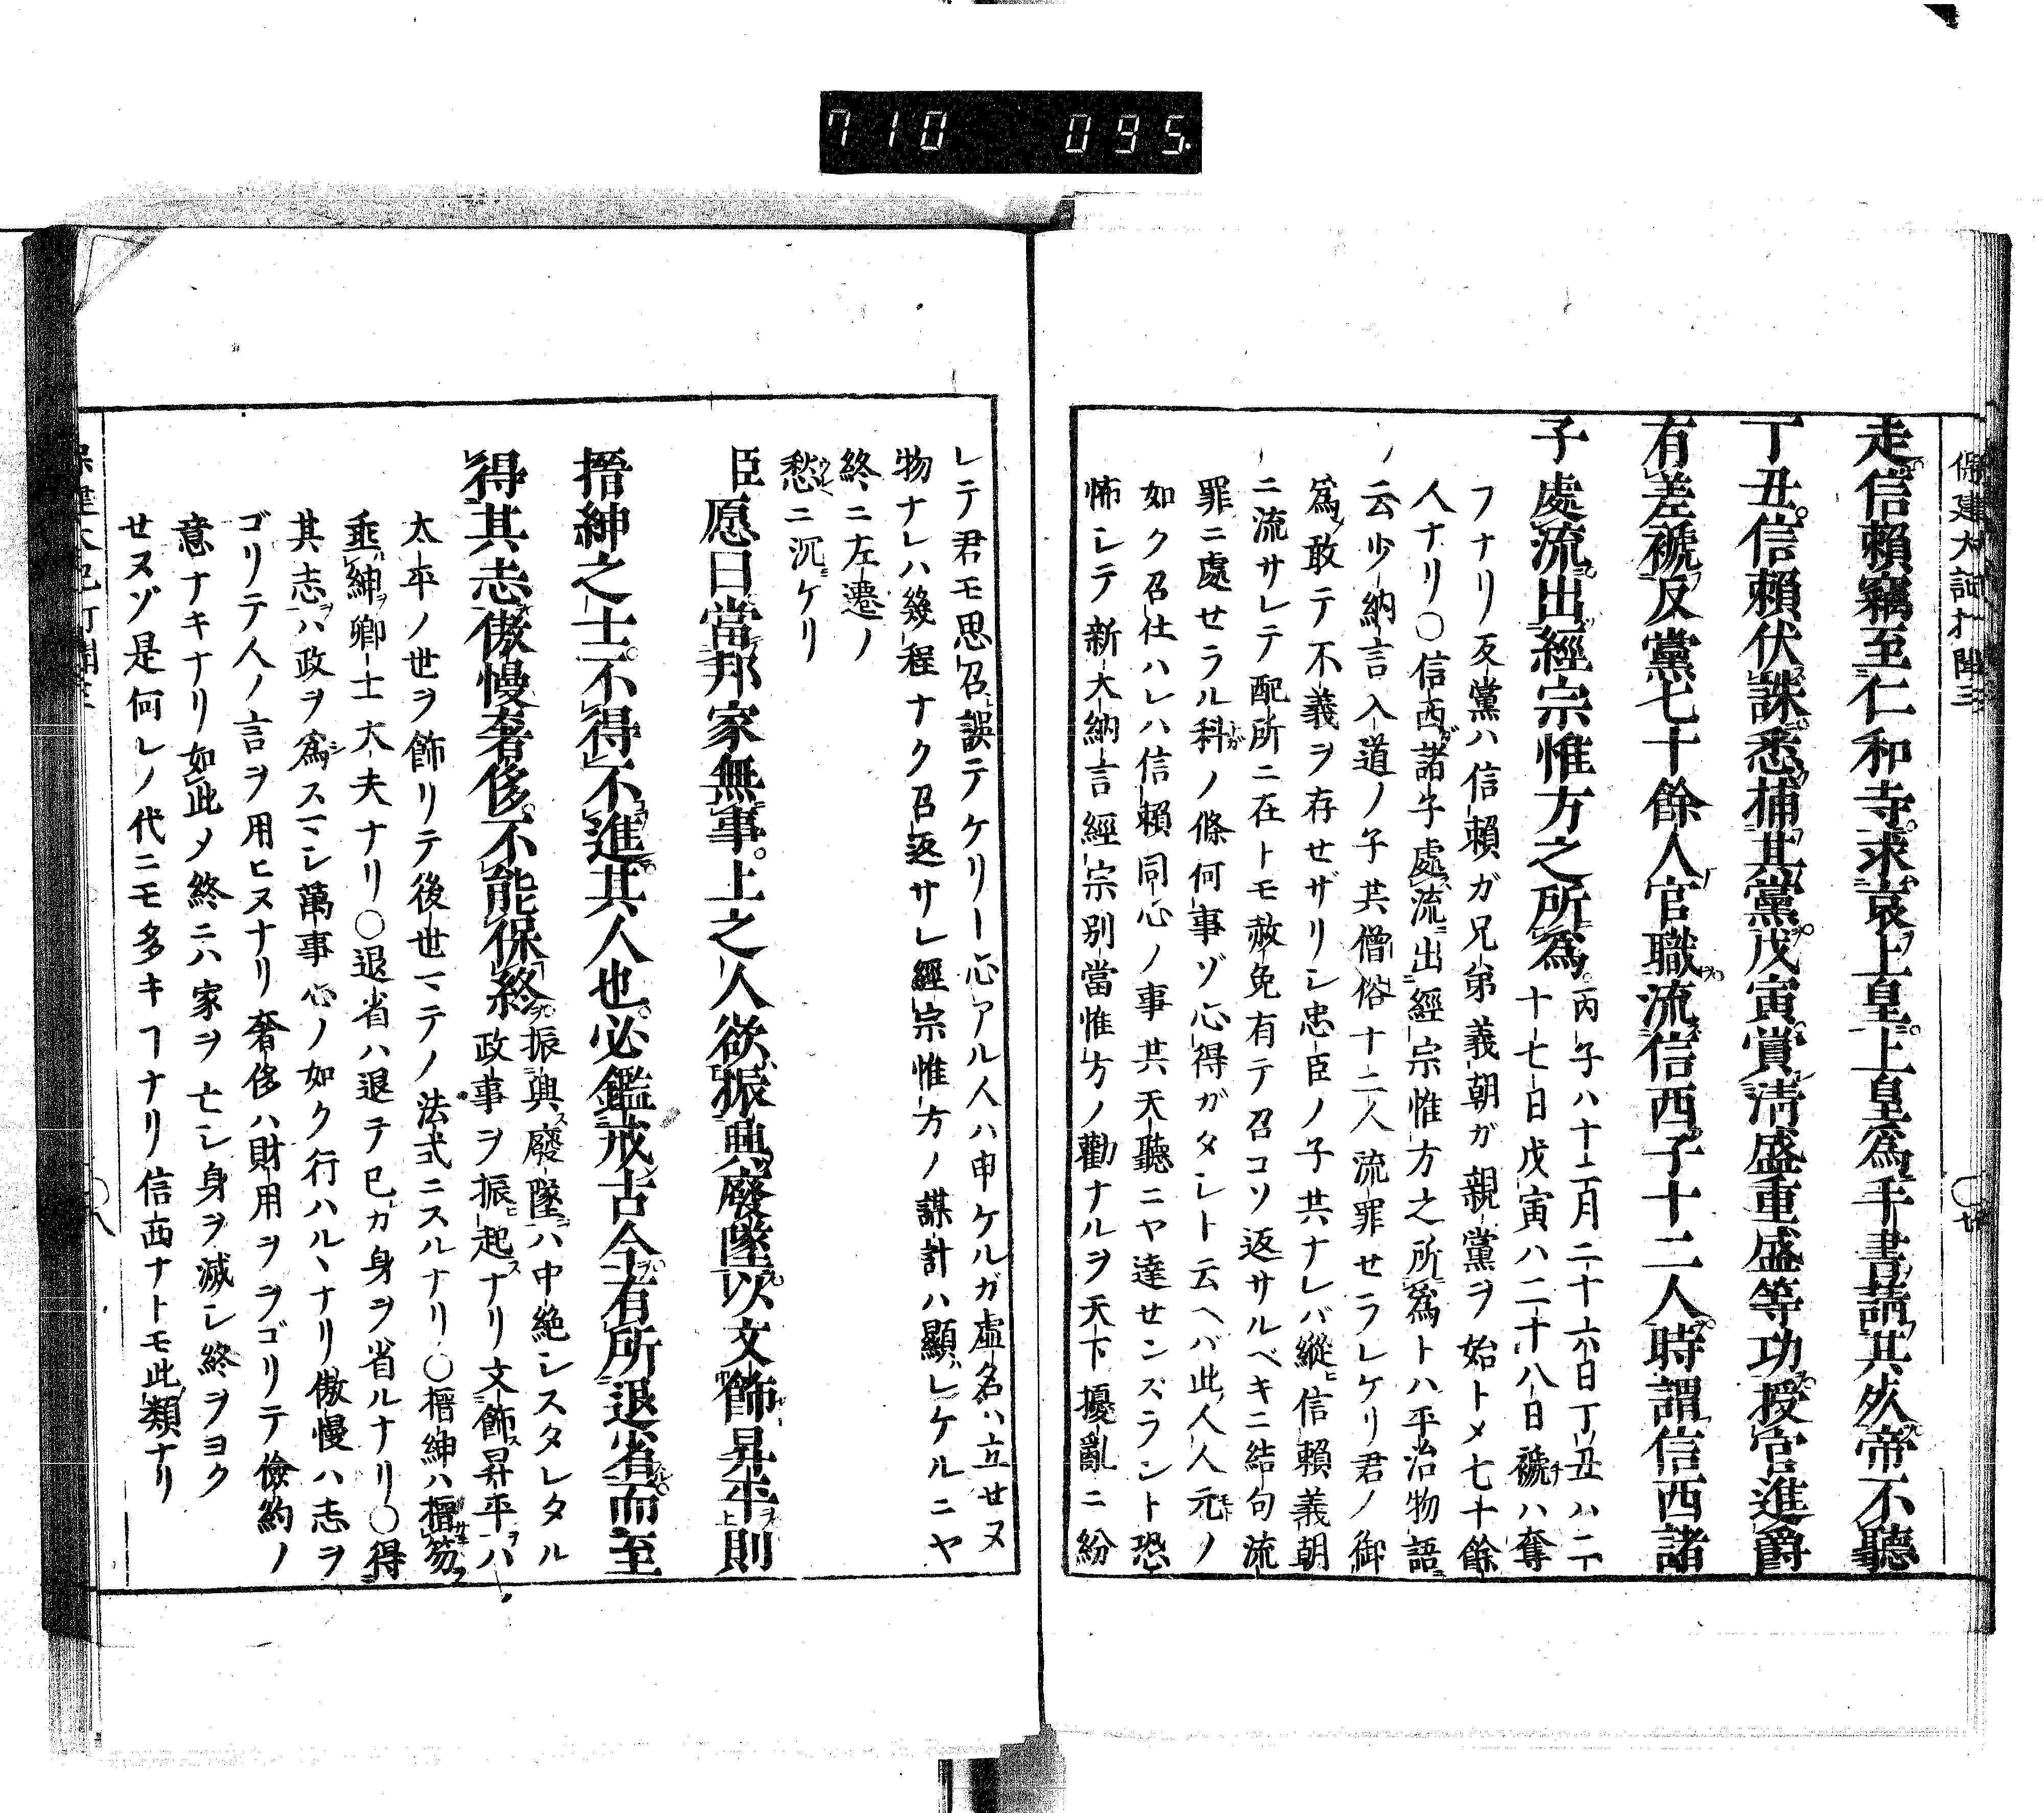 710 095.
保建大記打聞三
走信賴竊至仁和寺。求哀上皇。上皇爲手書請其死帝不聽
丁丑。信賴伏誅悉捕其黨。戊寅賞淸盛重盛等功授官進爵
有差褫反黨七十餘人官職流信西子十二人。時謂信西諸
子處流出經宗惟方之所爲。丙子ハ十二月二十六日丁丑ハ二
十七日戊寅ハ二十八日褫ハ奪
フナリ反黨ハ信賴ガ兄弟義朝ガ親黨ヲ始トメ七十餘
人ナリ〇信西諸子處流出經宗惟方之所爲トハ平治物語
ノ云少納言入道ノ子共僧俗十二人流罪せラレケリ君ノ御
爲敢テ不義ヲ存せザリシ忠臣ノ子共ナレバ縱信賴義朝
ニ流サレテ配所ニ在トモ赦免有テ召コソ返サルベキニ結句流
罪ニ處せラル科ノ條何事ゾ心得ガタシト云ヘバ此人人元ノ
如ク召仕ハレハ信賴同心ノ事共天聽ニヤ達せンズラント恐
怖シテ新大納言經宗別當惟方ノ勸ナルヲ天下擾亂ニ紛
レテ君モ思召誤テケリ心アル人ハ申ケルガ虛名ハ立せヌ
物ナレハ幾程ナク召返サレ經宗惟方ノ謀計ハ顯レケルニヤ
終ニ左遷ノ
愁ニ沉ケリ
臣愿曰當邦家無事。上之人欲振興廢墜以文飾昇平則
搢紳之士。不得不進其人也。必鑑戒古今有所退省。而至
得其志傲慢奢侈。不能保終振興廢墜ハ中絶シスタレタル
政事ヲ振起ナリ文飾昇平ハ
太平ノ世ヲ飾リテ後世マテノ法式ニスルナリ〇搢紳ハ搢笏
垂紳卿士大夫ナリ〇退省ハ退テ已カ身ヲ省ルナリ〇得
其志ハ政ヲ爲スマヽシ萬事心ノ如ク行ハルヽナリ傲慢ハ志ヲ
ゴリテ人ノ言ヲ用ヒヌナリ奢侈ハ財用ヲヲゴリテ儉約ノ
意ナキナリ如此メ終ニハ家ヲ亡シ身ヲ滅シ終ヲヨク
せヌゾ是何レノ代ニモ多キヿナリ信西ナトモ此類ナリ